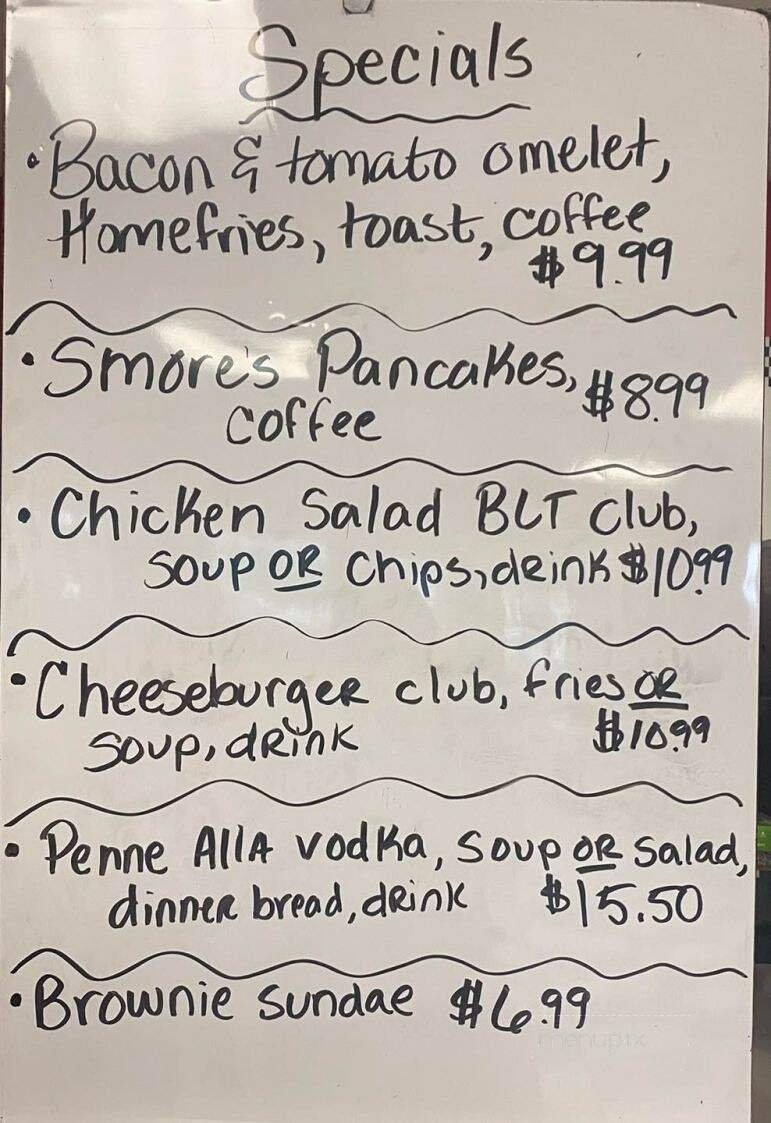 Specials
• Bacon & tomato omelet,
Homefries, toast, coffee
$9.99
• Smore's Pancakes, $8.99
coffee
• Chicken Salad BLT Club,
soup OR chips, drink $10.99
• Cheeseburger club, fries OR
soup, drink $10.99
• Penne Alla vodka, soup OR salad,
dinner bread, drink $15.50
• Brownie sundae $6.99
menupix